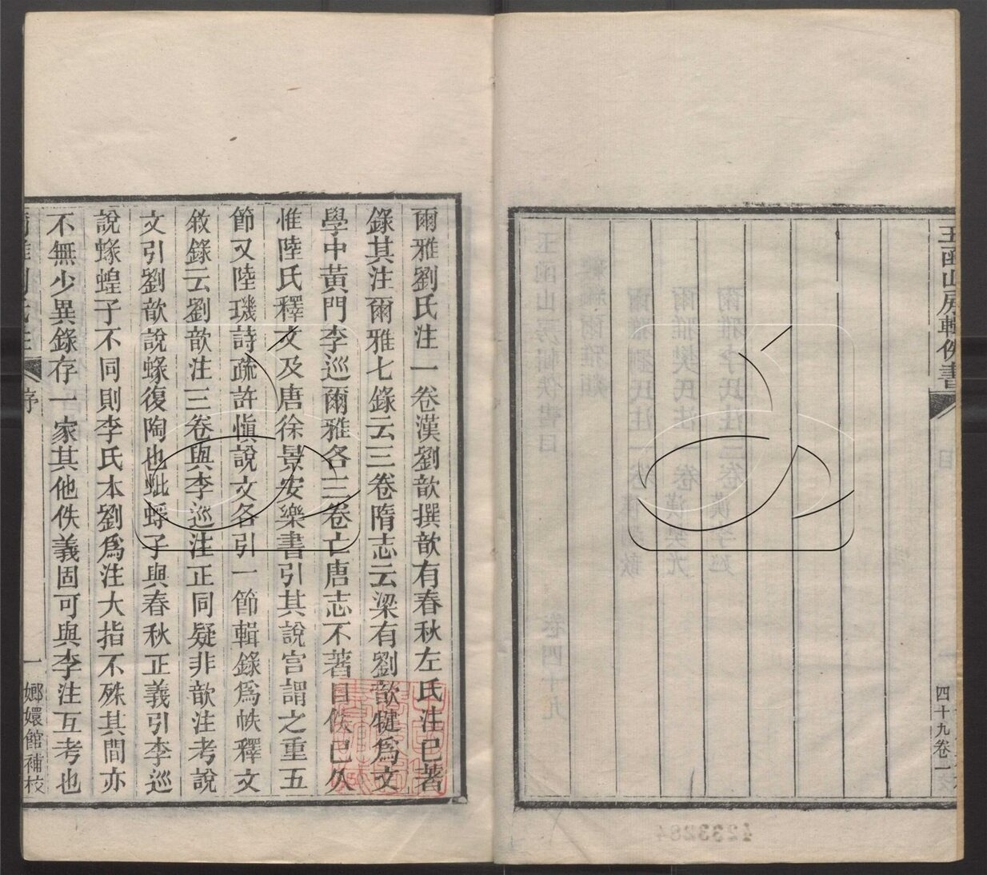 玉函山房輯佚書
目
四十九卷一
爾雅劉氏注一卷漢劉歆撰歆有春秋左氏注已著
錄其注爾雅七錄云三卷隋志云梁有劉歆犍爲文
學中黄門李巡爾雅各三卷亡唐志不著目佚已久
惟陸氏釋文及唐徐景安樂書引其說宫謂之重五
節又陸璣詩疏許愼說文各引一節輯錄爲帙釋文
敘錄云劉歆注三卷與李巡注正同疑非歆注考說
文引劉歆說蝝復陶也蚍蜉子與春秋正義引李巡
說蝝蝗子不同則李氏本劉爲注大指不殊其間亦
不無少異錄存一家其他佚義固可與李注互考也
爾雅劉氏注
序
一
嫏嬛館補校
4233284